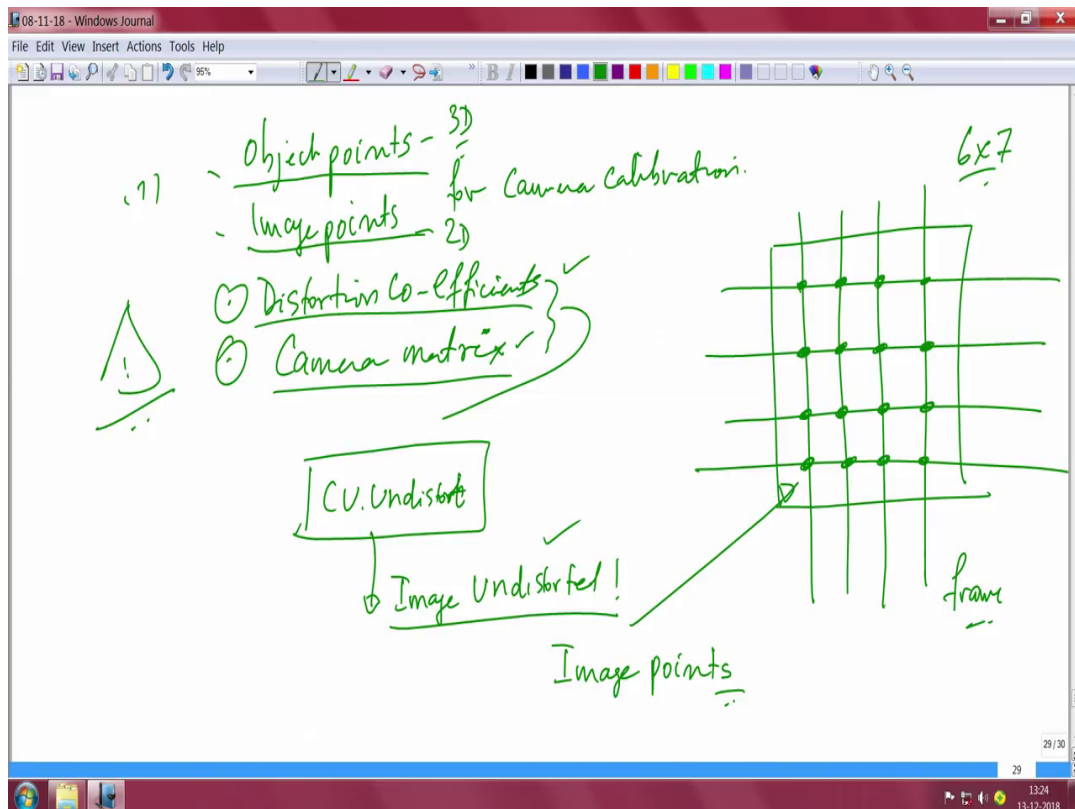 08-11-18 - Windows Journal
File Edit View Insert Actions Tools Help
95%
B I
Object points - 3D
for Camera calibration.
Image points - 2D
6x7
Distortion Co-efficients
Camera matrix
!
CV.Undistort
Image Undistorted!
frame
Image points
29/30
29
13:24
13-12-2018